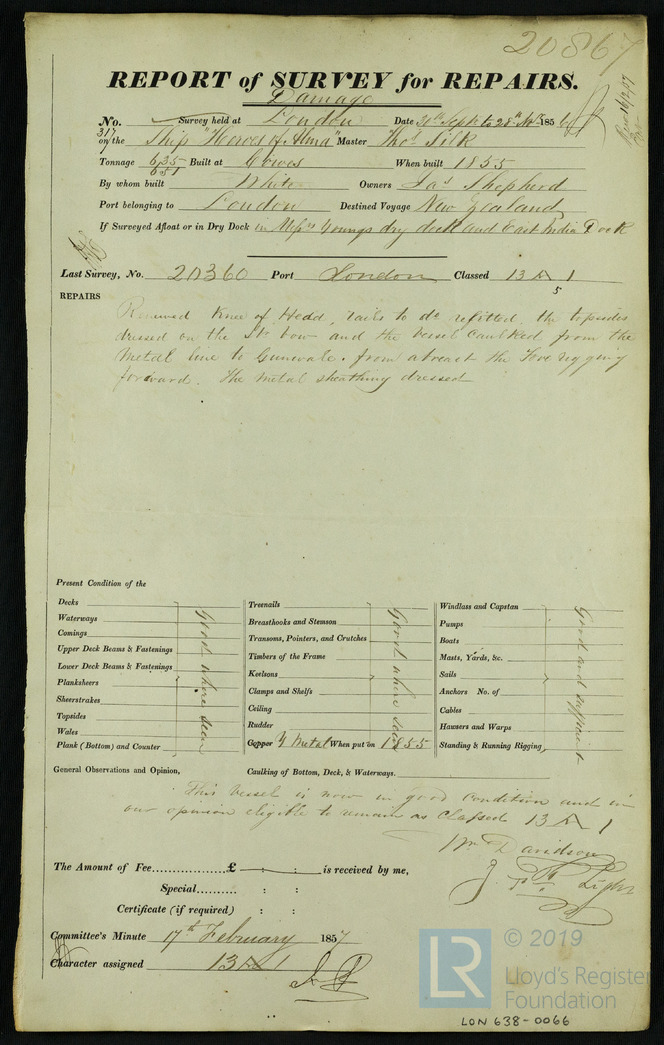 20867
REPORT of SURVEY for REPAIRS.
Damage
No. Survey held at London Date to 1856
317
on the Ship "Heroes of Alma" Master Thos Silk
Tonnage 635 Built at Cowes When built 1855
651
By whom built White Owners Jas Shepherd
Port belonging to London Destined Voyage New Zealand
If Surveyed Afloat or in Dry Dock in Messrs Youngs dry dock and East India Dock
Last Survey, No. 20360 Port London Classed 13 A 1
5
REPAIRS
Renewed Knee of Head, rails to do refitted, the topsides
dressed on the bow and the vessel caulked from the
Metal line to Gunwale. from abreast the Fore rigging
forward. The metal sheathing dressed
Present Condition of the
Decks
Waterways
Comings
Upper Deck Beams & Fastenings
Lower Deck Beams & Fastenings
Planksheers
Sheerstrakes
Topsides
Wales
Plank (Bottom) and Counter
Good where seen
Treenails
Breasthooks and Stemson
Transoms, Pointers, and Crutches
Timbers of the Frame
Keelsons
Clamps and Shelfs
Ceiling
Rudder
Copper Y Metal When put on 1855
Good where seen
Windlass and Capstan
Pumps
Boats
Masts, Yards, &c.
Sails
Anchors No. of
Cables
Hawsers and Warps
Standing & Running Rigging
Good and sufficient
General Observations and Opinion, Caulking of Bottom, Deck, & Waterways.
This vessel is now in good condition and in
our opinion eligible to remain as Classed 13 A 1
Wm Davidson
J. Light
The Amount of Fee.................£ : : is received by me,
Special......... : :
Certificate (if required) : :
Committee's Minute 17th February 1857
Character assigned 13 A 1
LR © 2019
Lloyd's Register
Foundation
LON 638-0066